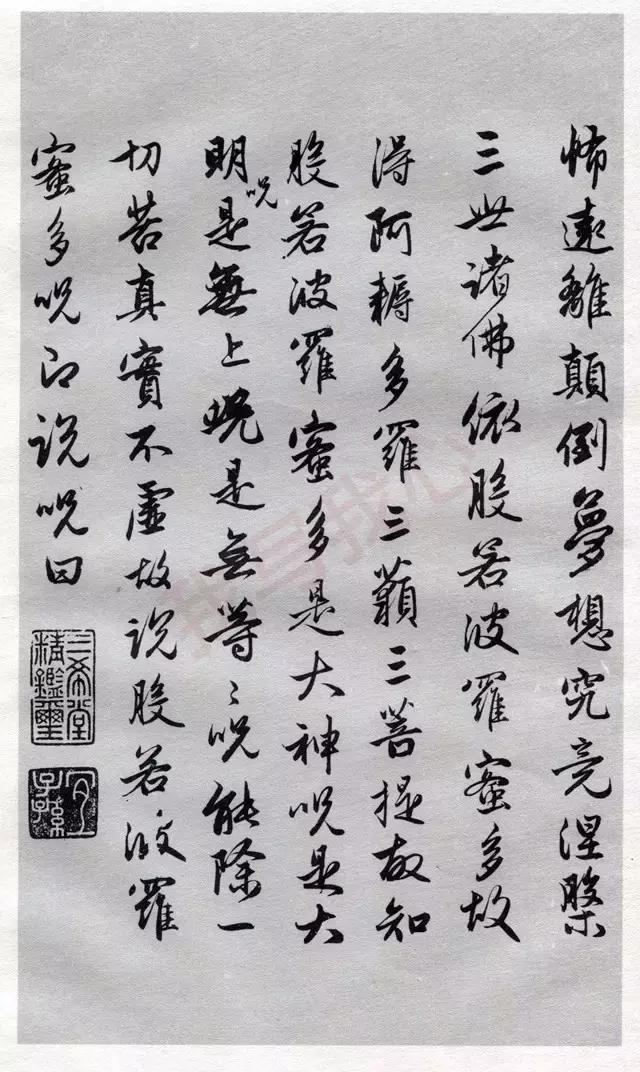 怖遠離顛倒夢想究竟涅槃
三世諸佛依般若波羅蜜多故
得阿耨多羅三藐三菩提故知
般若波羅蜜多是大神呪是大
明呪是無上呪是無等〻呪能除一
切苦真實不虛故說般若波羅
蜜多呪即說呪曰
三希堂精鑑璽
宜子孫